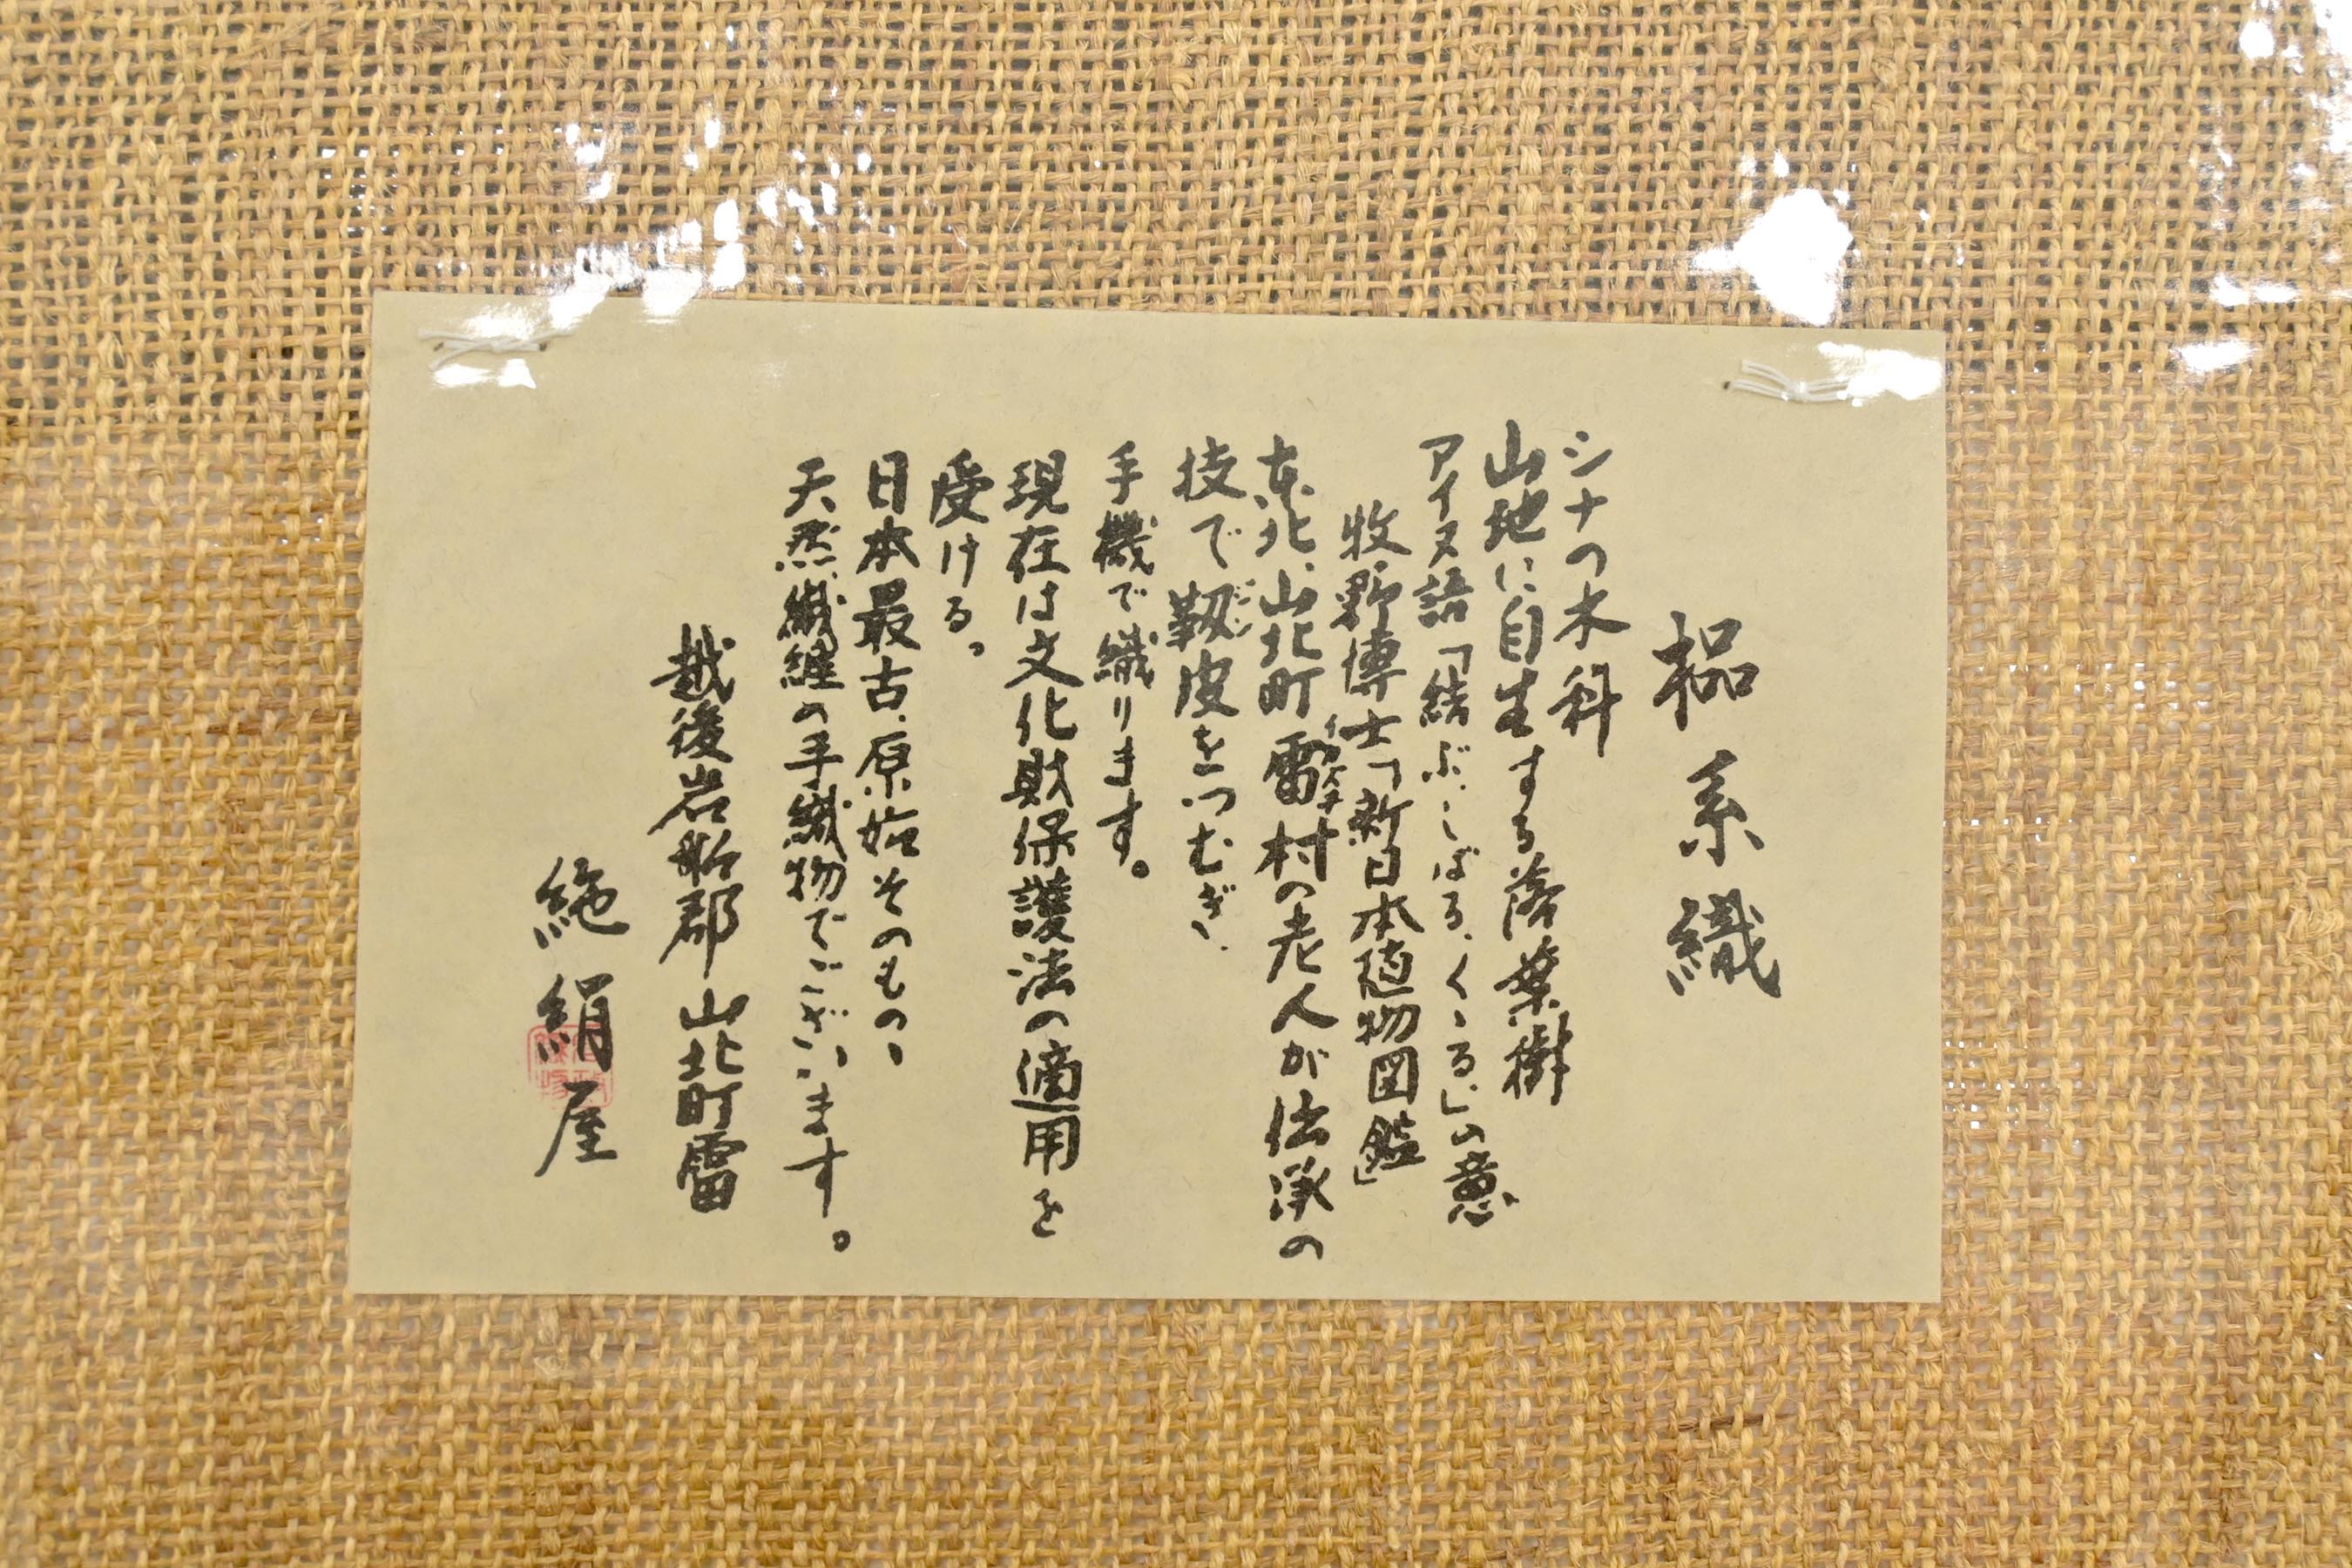 榀糸織
シナの木科
山地に自生する落葉樹
アイヌ語「結ぶ、しばる、くゝる」の意
牧野博士「新日本植物図鑑」
東北、山北町雷村の老人が伝承の
イカヅチ
技で靱皮をつむぎ、
ジンピ
手機で織ります。
現在は文化財保護法の適用を
受ける。
日本最古、原始そのもの、
天然繊維の手織物でございます。
越後岩船郡 山北町雷
絁絹屋